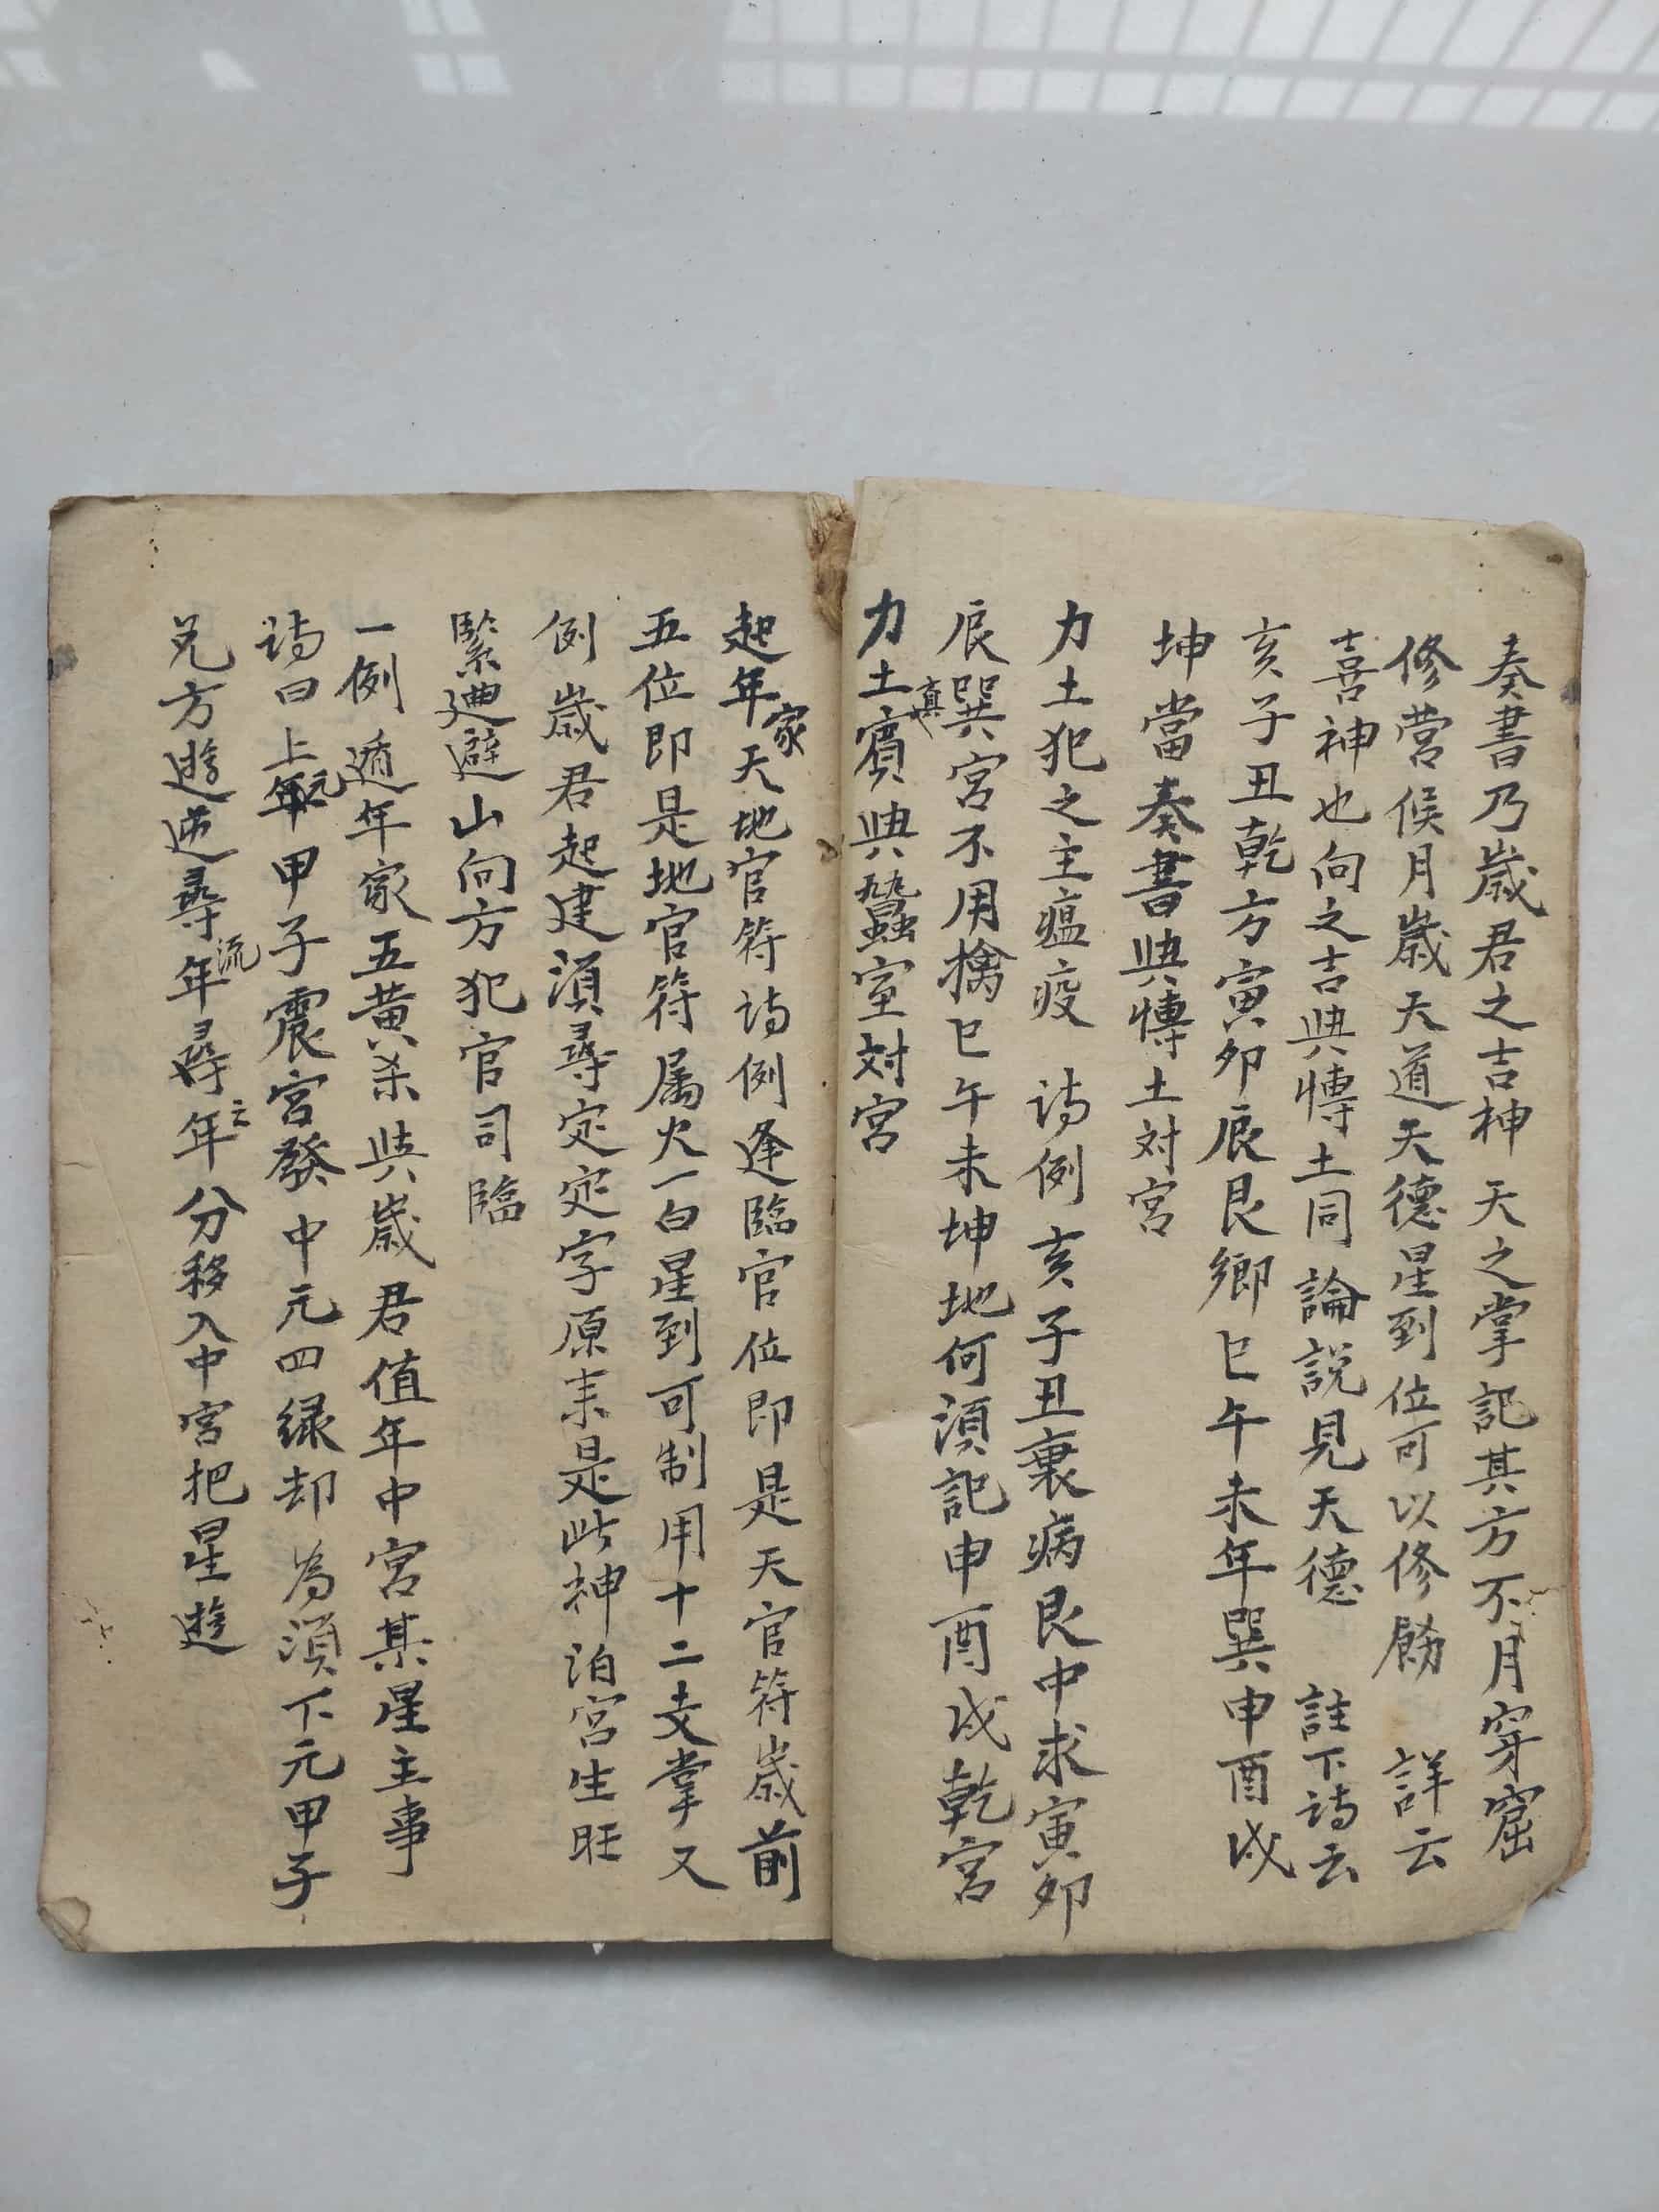 奏書乃歲君之吉神 天之掌記其方不月穿窟
修营候月歲天道天德星到位可以修 詳云
喜神也向之吉與愽土同論說見天德 註下诗云
亥子丑乾方寅卯辰艮鄉巳午未年巽申酉戌
坤當奏書與愽土対宫
力土犯之主瘟疫 诗例 亥子丑裏病艮中求寅卯
辰巽宫不用擒巳午未坤地何湏記申酉戌乾宫
力土真與蠶室対宫
起年家天地官符诗例逢臨官位即是天官符歲前
五位即是地官符属火一白星到可制用十二支掌又
例歲君起建湏尋定定字原来是此神泊宫生旺
緊廻避山向方犯官司臨
一例遁年家五黄杀與歲君值年中宫某星主事
诗曰上元年甲子震宫發中元四绿却為湏下元甲子
兑方遊逆尋流年尋年云分移入中宫把星遊